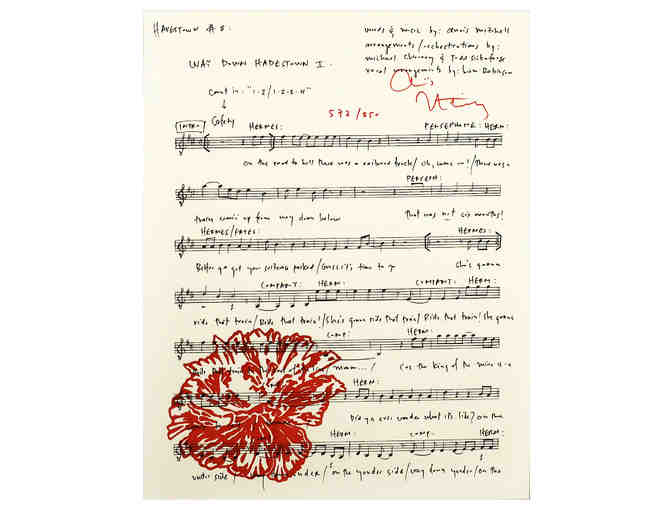 HADESTOWN # 8:
words & music by: Anaïs Mitchell
arrangements/orchestrations by:
Michael Chorney & Todd Sickafoose
vocal arrangements by: Liam Robinson
WAY DOWN HADESTOWN I.
Count in: "1-2/1-2-3-4"
572/850
INTRO Safety HERMES: PERSEPHONE: HERM:
On the road to hell there was a railroad track/ Oh, come on!/There was a
PERSEPH:
train comin' up from way down below That was not six months!
HERMES/FATES: HERMES:
Better go get your suitcase packed/Guess it's time to go She's gonna
COMPANY: HERM: COMPANY: HERM:
ride that train/Ride that train!/She's gonna ride that train/Ride that train! She gonna
COMP: HERM:
ride that train ... man.../ Cos the king of the mine is a
HERM:
Did ya ever wonder what it's like? On the
HERM: COMP: HERM:
under side / yonder/ On the yonder side/Way down yonder/On the